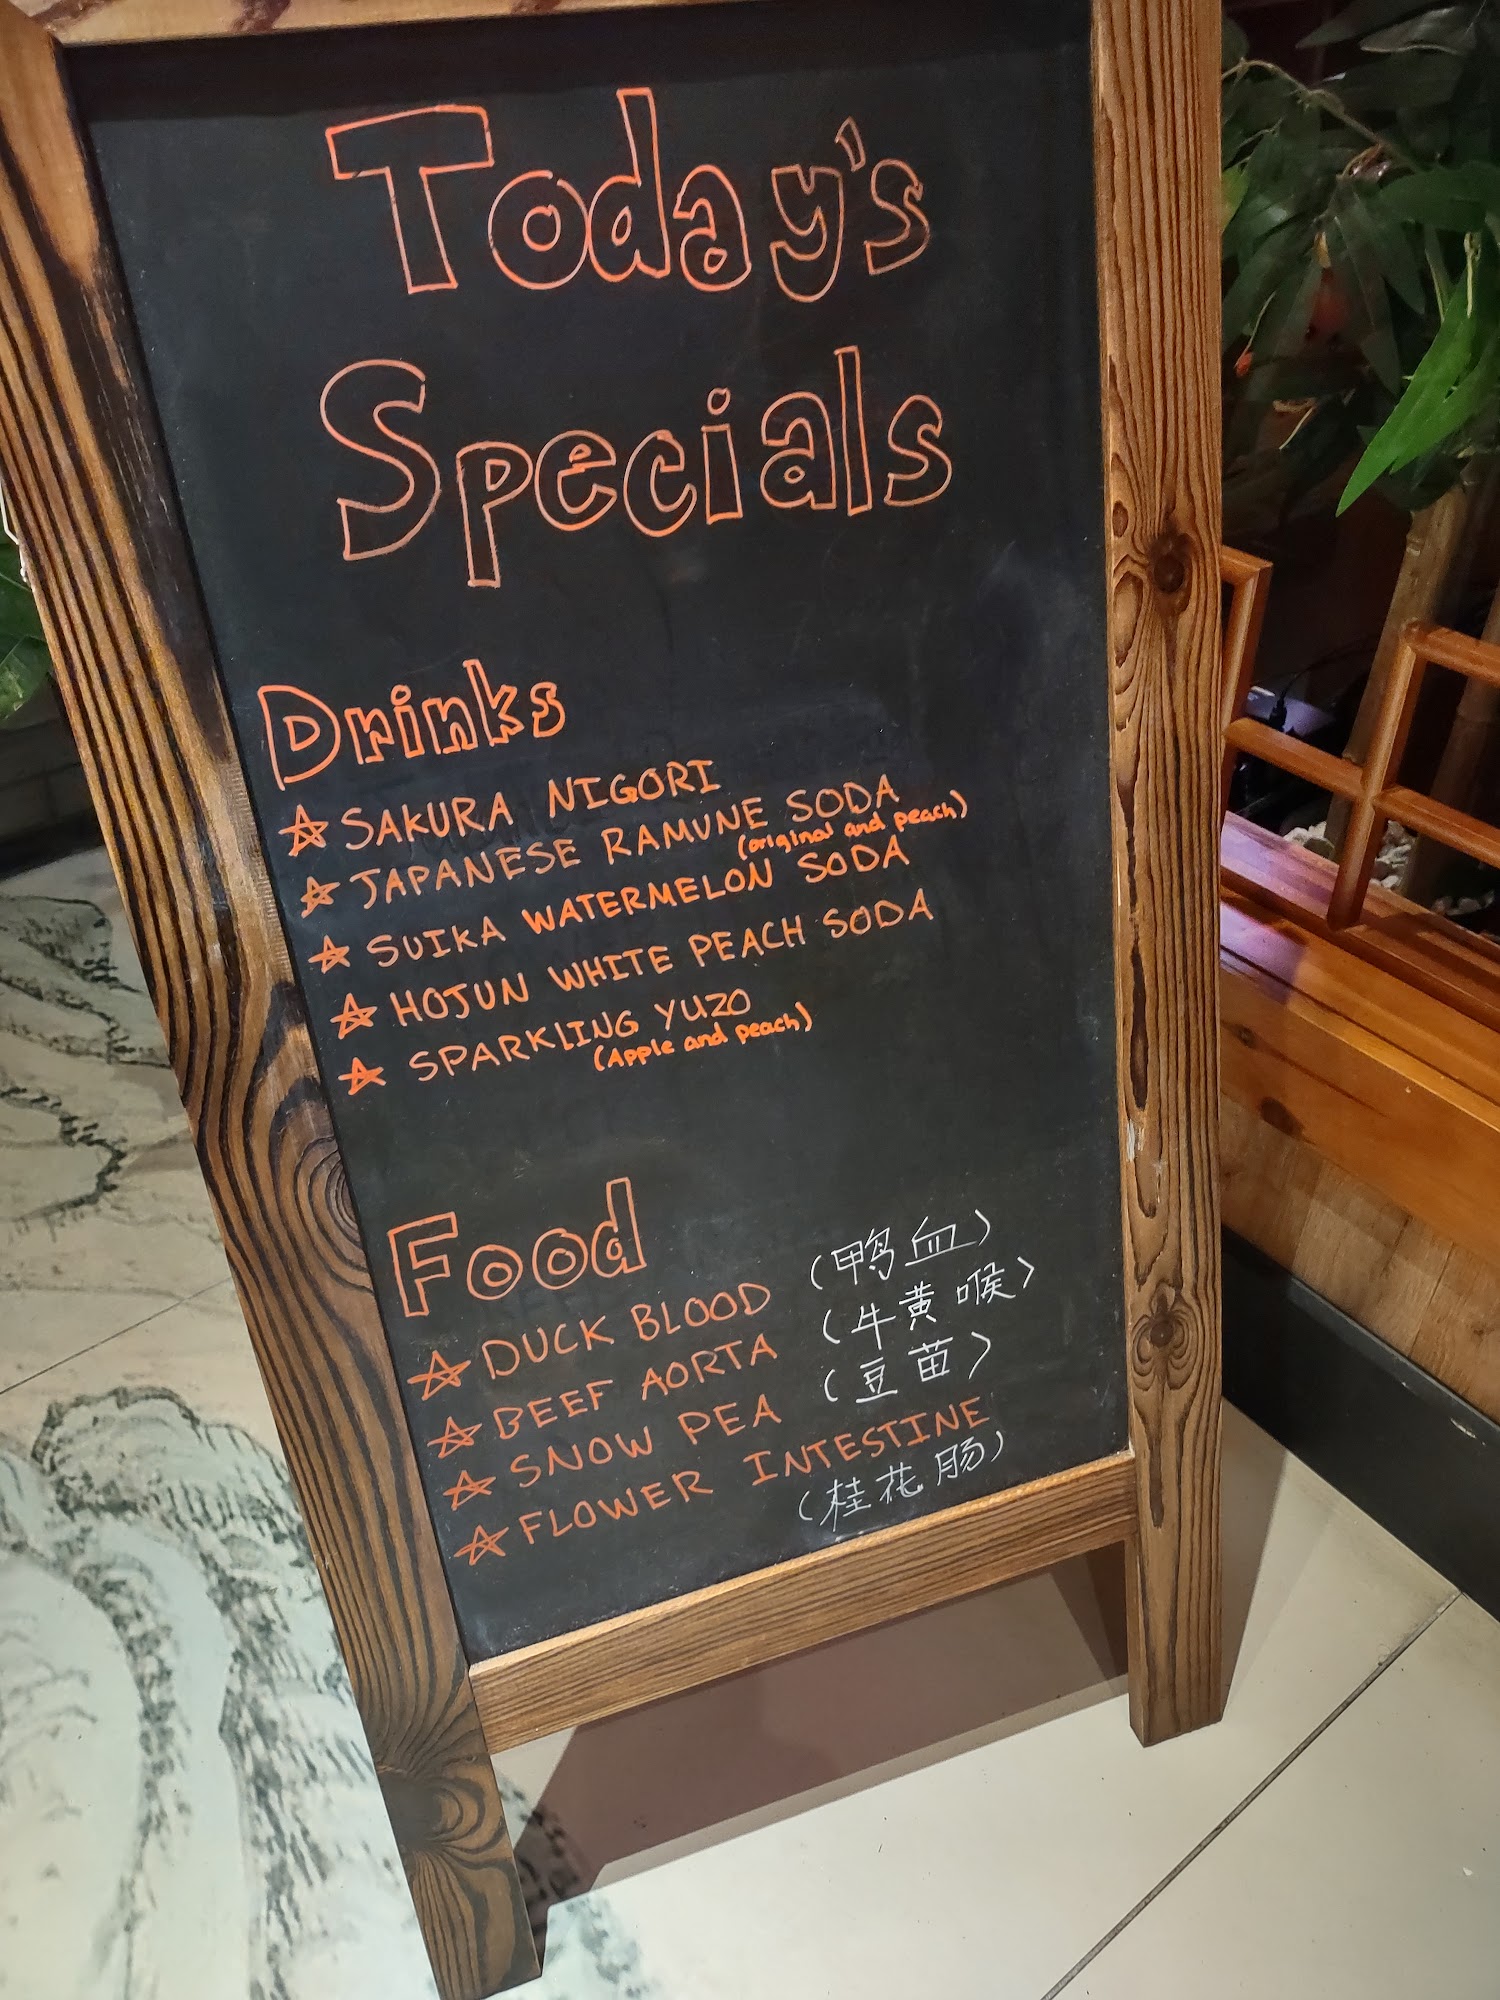 Today's
Specials
Drinks
☆ SAKURA NIGORI
☆ JAPANESE RAMUNE SODA
(original and peach)
☆ SUIKA WATERMELON SODA
☆ HOJUN WHITE PEACH SODA
☆ SPARKLING YUZO
(Apple and peach)
Food
☆ DUCK BLOOD (鸭血)
☆ BEEF AORTA (牛黄喉)
☆ SNOW PEA (豆苗)
☆ FLOWER INTESTINE
(桂花肠)